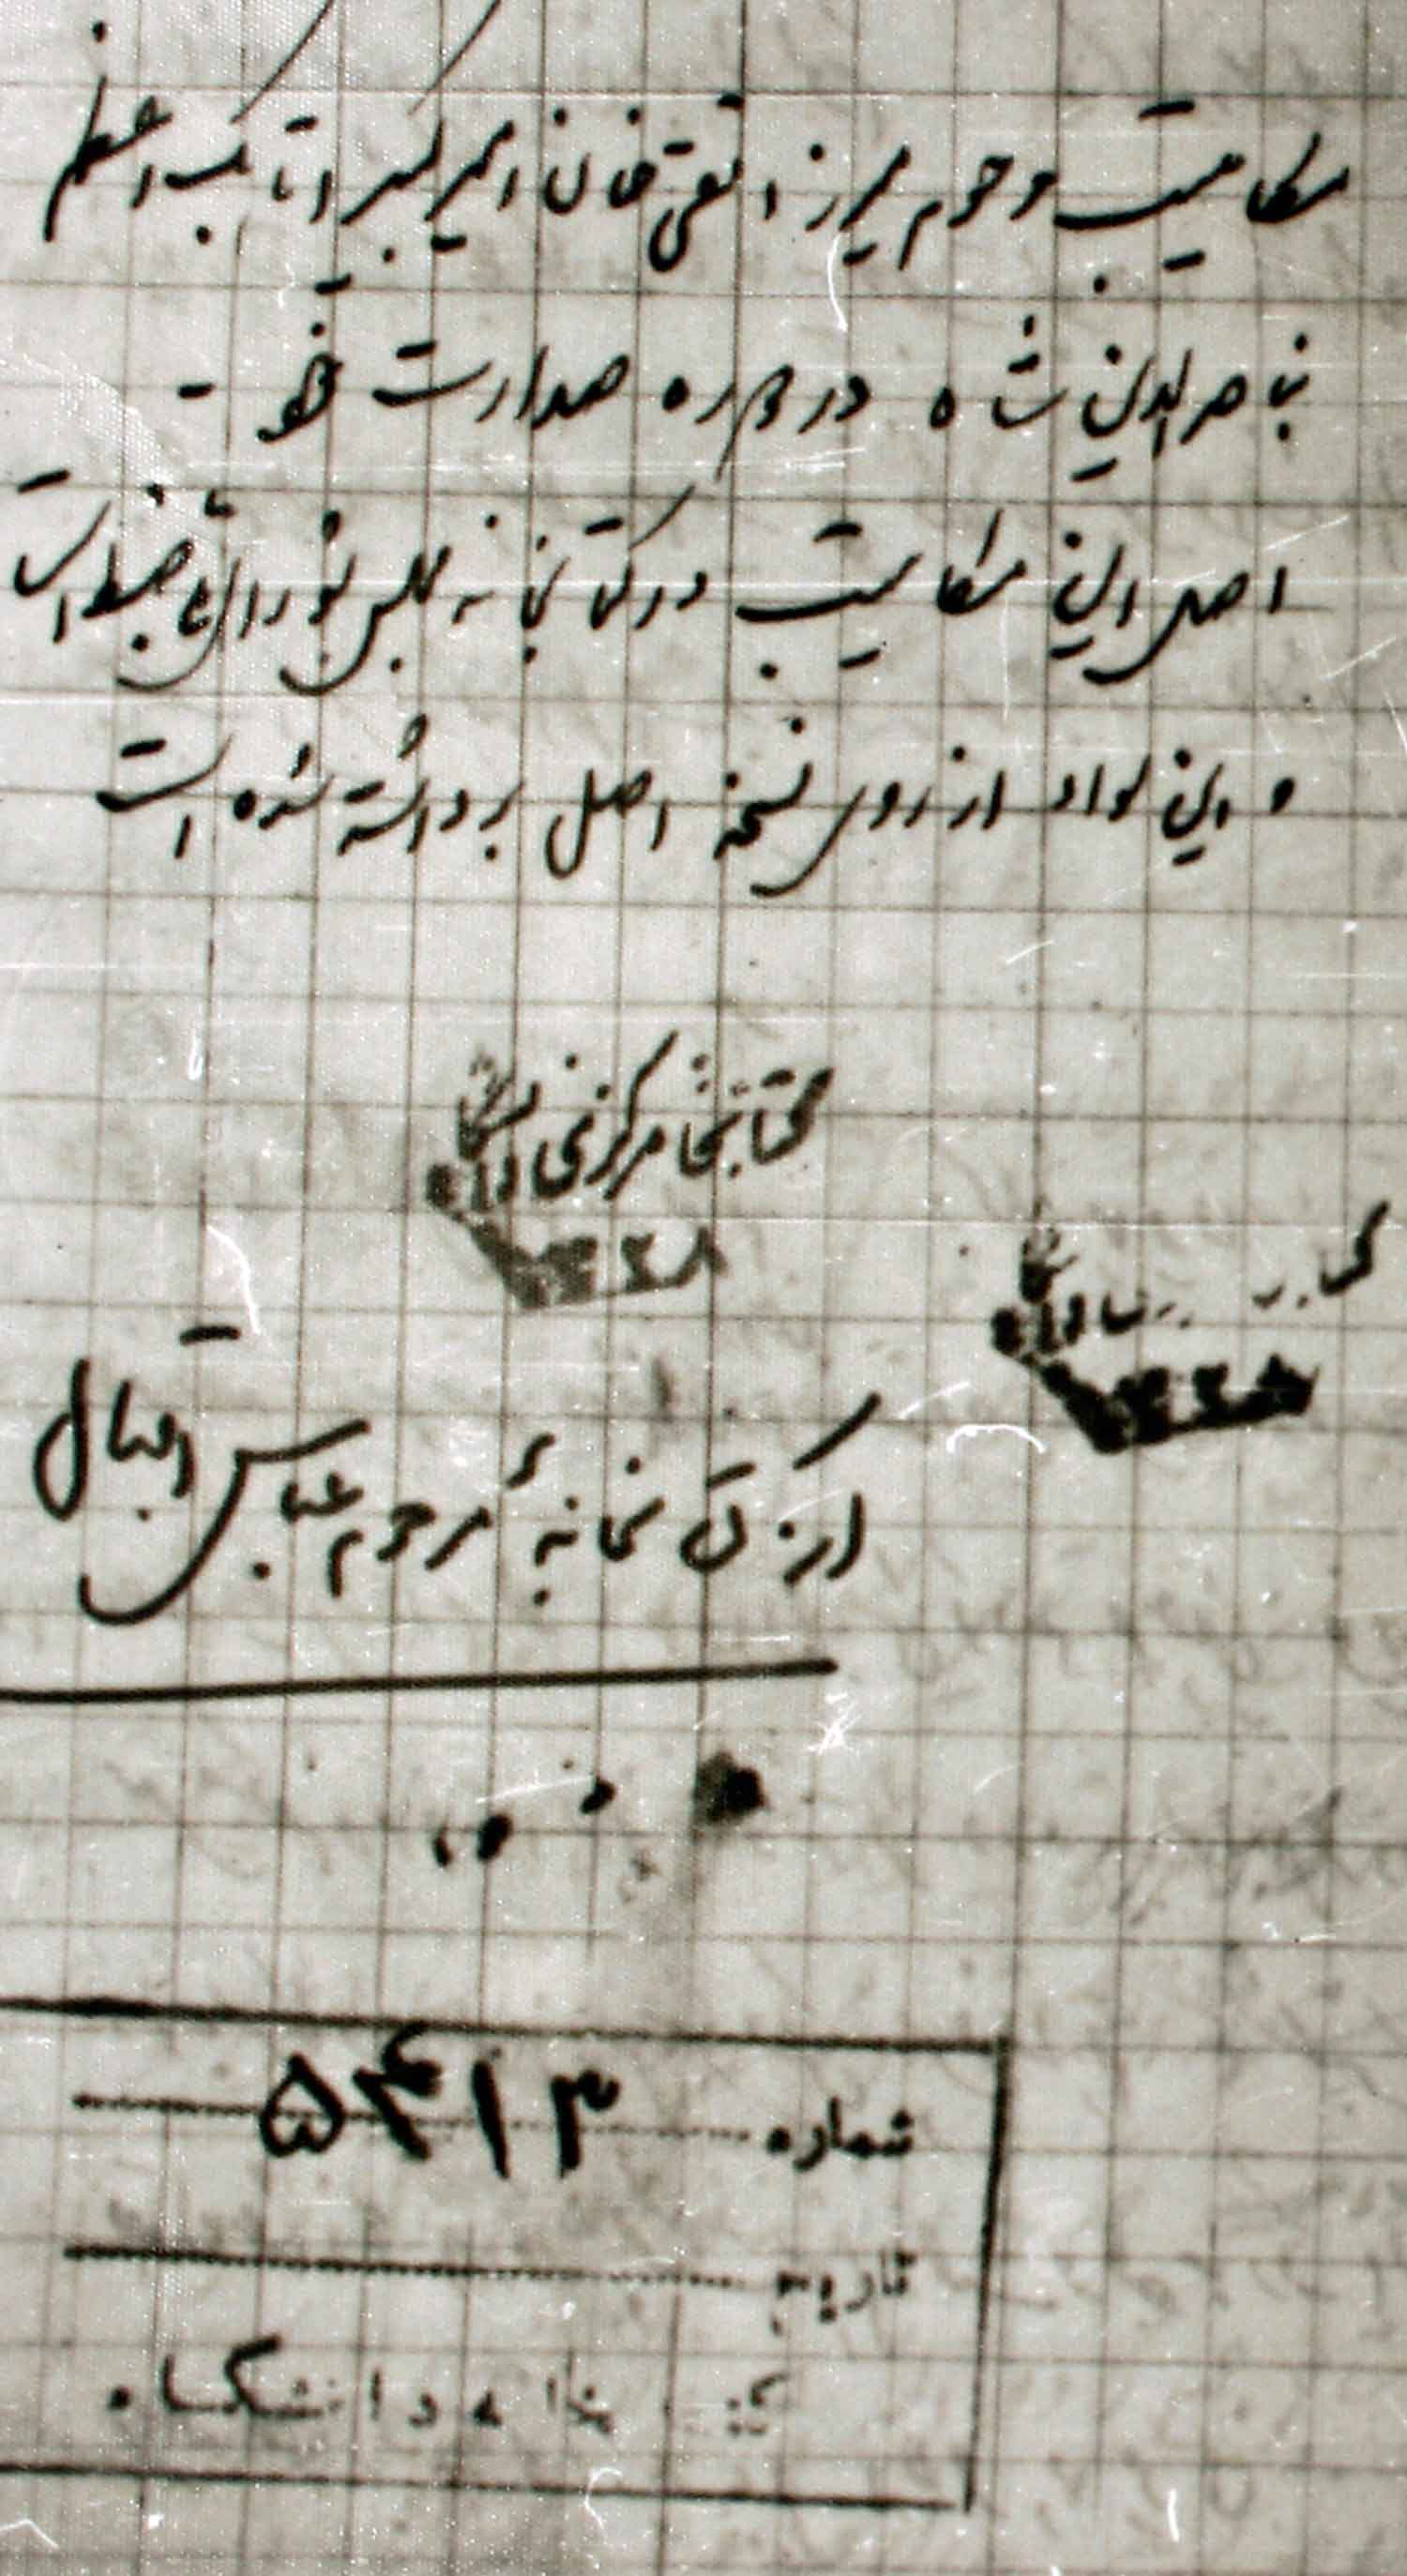 مکاتیب مرحوم میرزا تقی خان امیرکبیر اتابک اعظم
بناصرالدین شاه در دوره صدارت خود -
اصل این مکاتیب در کتابخانه مجلس شورای ملی ضبط است
و این سواد از روی نسخه اصل برداشته شده است
کتابخانه مرکزی دانشگاه
از کتابخانهٔ مرحوم عباس اقبال
شماره ۵۴۱۳
تاریخ
کتابخانه دانشگاه